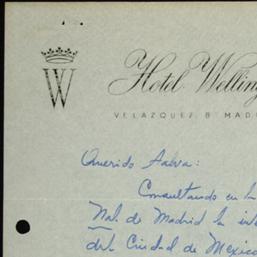 W
Hotel Welling
VELAZQUEZ 8 MAD
Querido
Consultando en la
Nal. de Madrid la inte
del Ciudad de Mexico